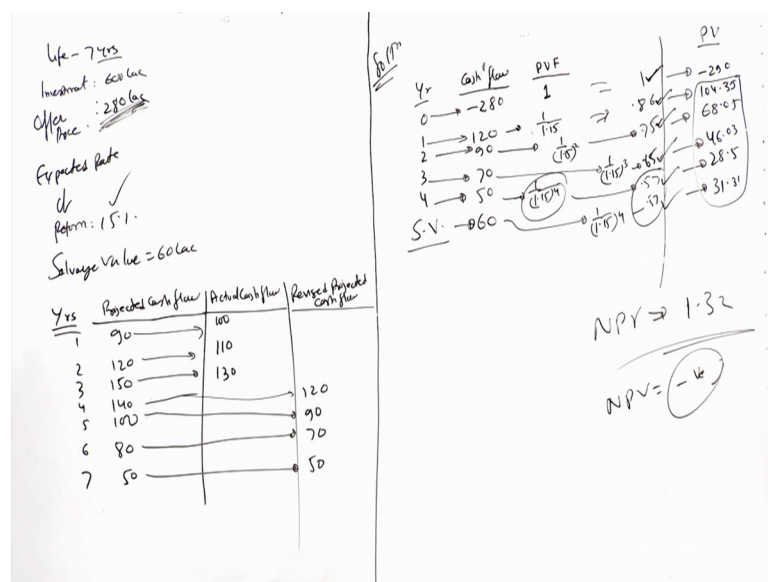 Life - 7 yrs
Investment : 600 Lac
Offer Price : 280 Lac
Expected Rate
of
Return : 15%
Salvage Value = 60 Lac
Yrs Projected Cash flow Actual Cash flow Revised Projected Cash flow
1 90 100
2 120 110
3 150 130
4 140 120
5 100 90
6 80 70
7 50 50
Sol/n
Yr Cash flow PVF PV
0 -280 1 = 1 -290
1 120 1/1.15 ⇒ .86 104.35
2 90 1/(1.15)² .75 68.05
3 70 1/(1.15)³ .65 46.03
4 50 1/(1.15)⁴ .57 28.5
S.V. 60 1/(1.15)⁴ .57 31.31
NPV ⇒ 1.32
NPV = -ve